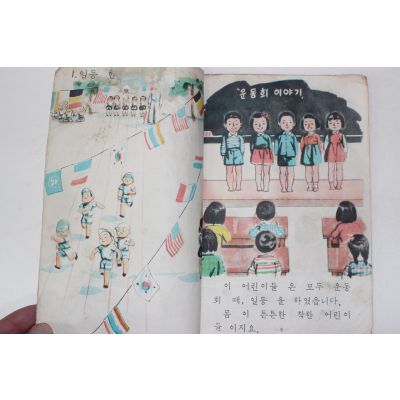 1. 일등 한
운동회 이야기
이 어린이들 은 모두 운동
회 때, 일등 을 하였습니다.
몸 이 튼튼한 착한 어린이
들 이지요.